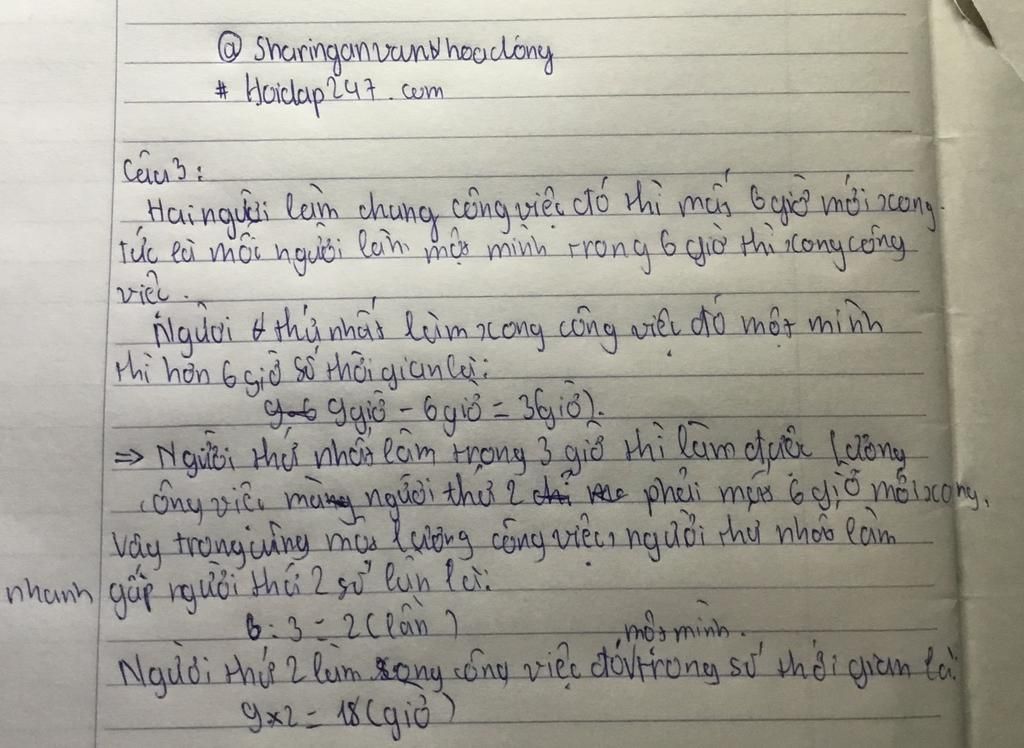 @ Sharinganvanhoadông
# Hoidap247.com
Câu 3:
Hai người làm chung công việc đó thì mất 6 giờ mới xong.
tức là mỗi người làm một mình trong 6 giờ thì xong công
việc.
Người thứ nhất làm xong công việc đó một mình
thì hơn 6 giờ số thời gian là:
9 giờ - 6 giờ = 3(giờ).
⇒ Người thứ nhất làm trong 3 giờ thì làm được lượng
công việc mà người thứ 2 phải mất 6 giờ mới xong.
Vậy trong cùng một lượng công việc, người thứ nhất làm
nhanh gấp người thứ 2 số lần là:
6 : 3 = 2 (lần)
một mình.
Người thứ 2 làm xong công việc đó trong số thời gian là:
9 x 2 = 18 (giờ)